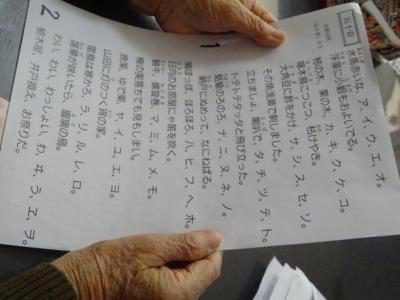 五十音
1
水馬赤いな、ア、イ、ウ、エ、オ。
浮藻に小蝦もおよいでる。
柿の木、栗の木、カ、キ、ク、ケ、コ。
啄木鳥こつこつ、枯れけやき。
大角豆に酢をかけ、サ、シ、ス、セ、ソ。
その魚浅瀬で刺しました。
立ちましょ、喇叭で、タ、チ、ツ、テ、ト。
トテトテタッタと飛び立った。
蛞蝓のろのろ、ナ、ニ、ヌ、ネ、ノ。
納戸にぬめって、なにねばる。
鳩ぽっぽ、ほろほろ、ハ、ヒ、フ、ヘ、ホ。
日向のお部屋にゃ笛を吹く。
蝸牛、螺旋巻、マ、ミ、ム、メ、モ。
梅の実落ちても見もしまい。
焼栗、ゆで栗、ヤ、イ、ユ、エ、ヨ。
山田に灯のつく宵の家。
雷鳥は寒かろ、ラ、リ、ル、レ、ロ。
蓮華が咲いたら、瑠璃の鳥。
わい、わい、わっしょい。わ、ヰ、う、ヱ、ヲ。
植木屋、井戸換え、お祭りだ。
2